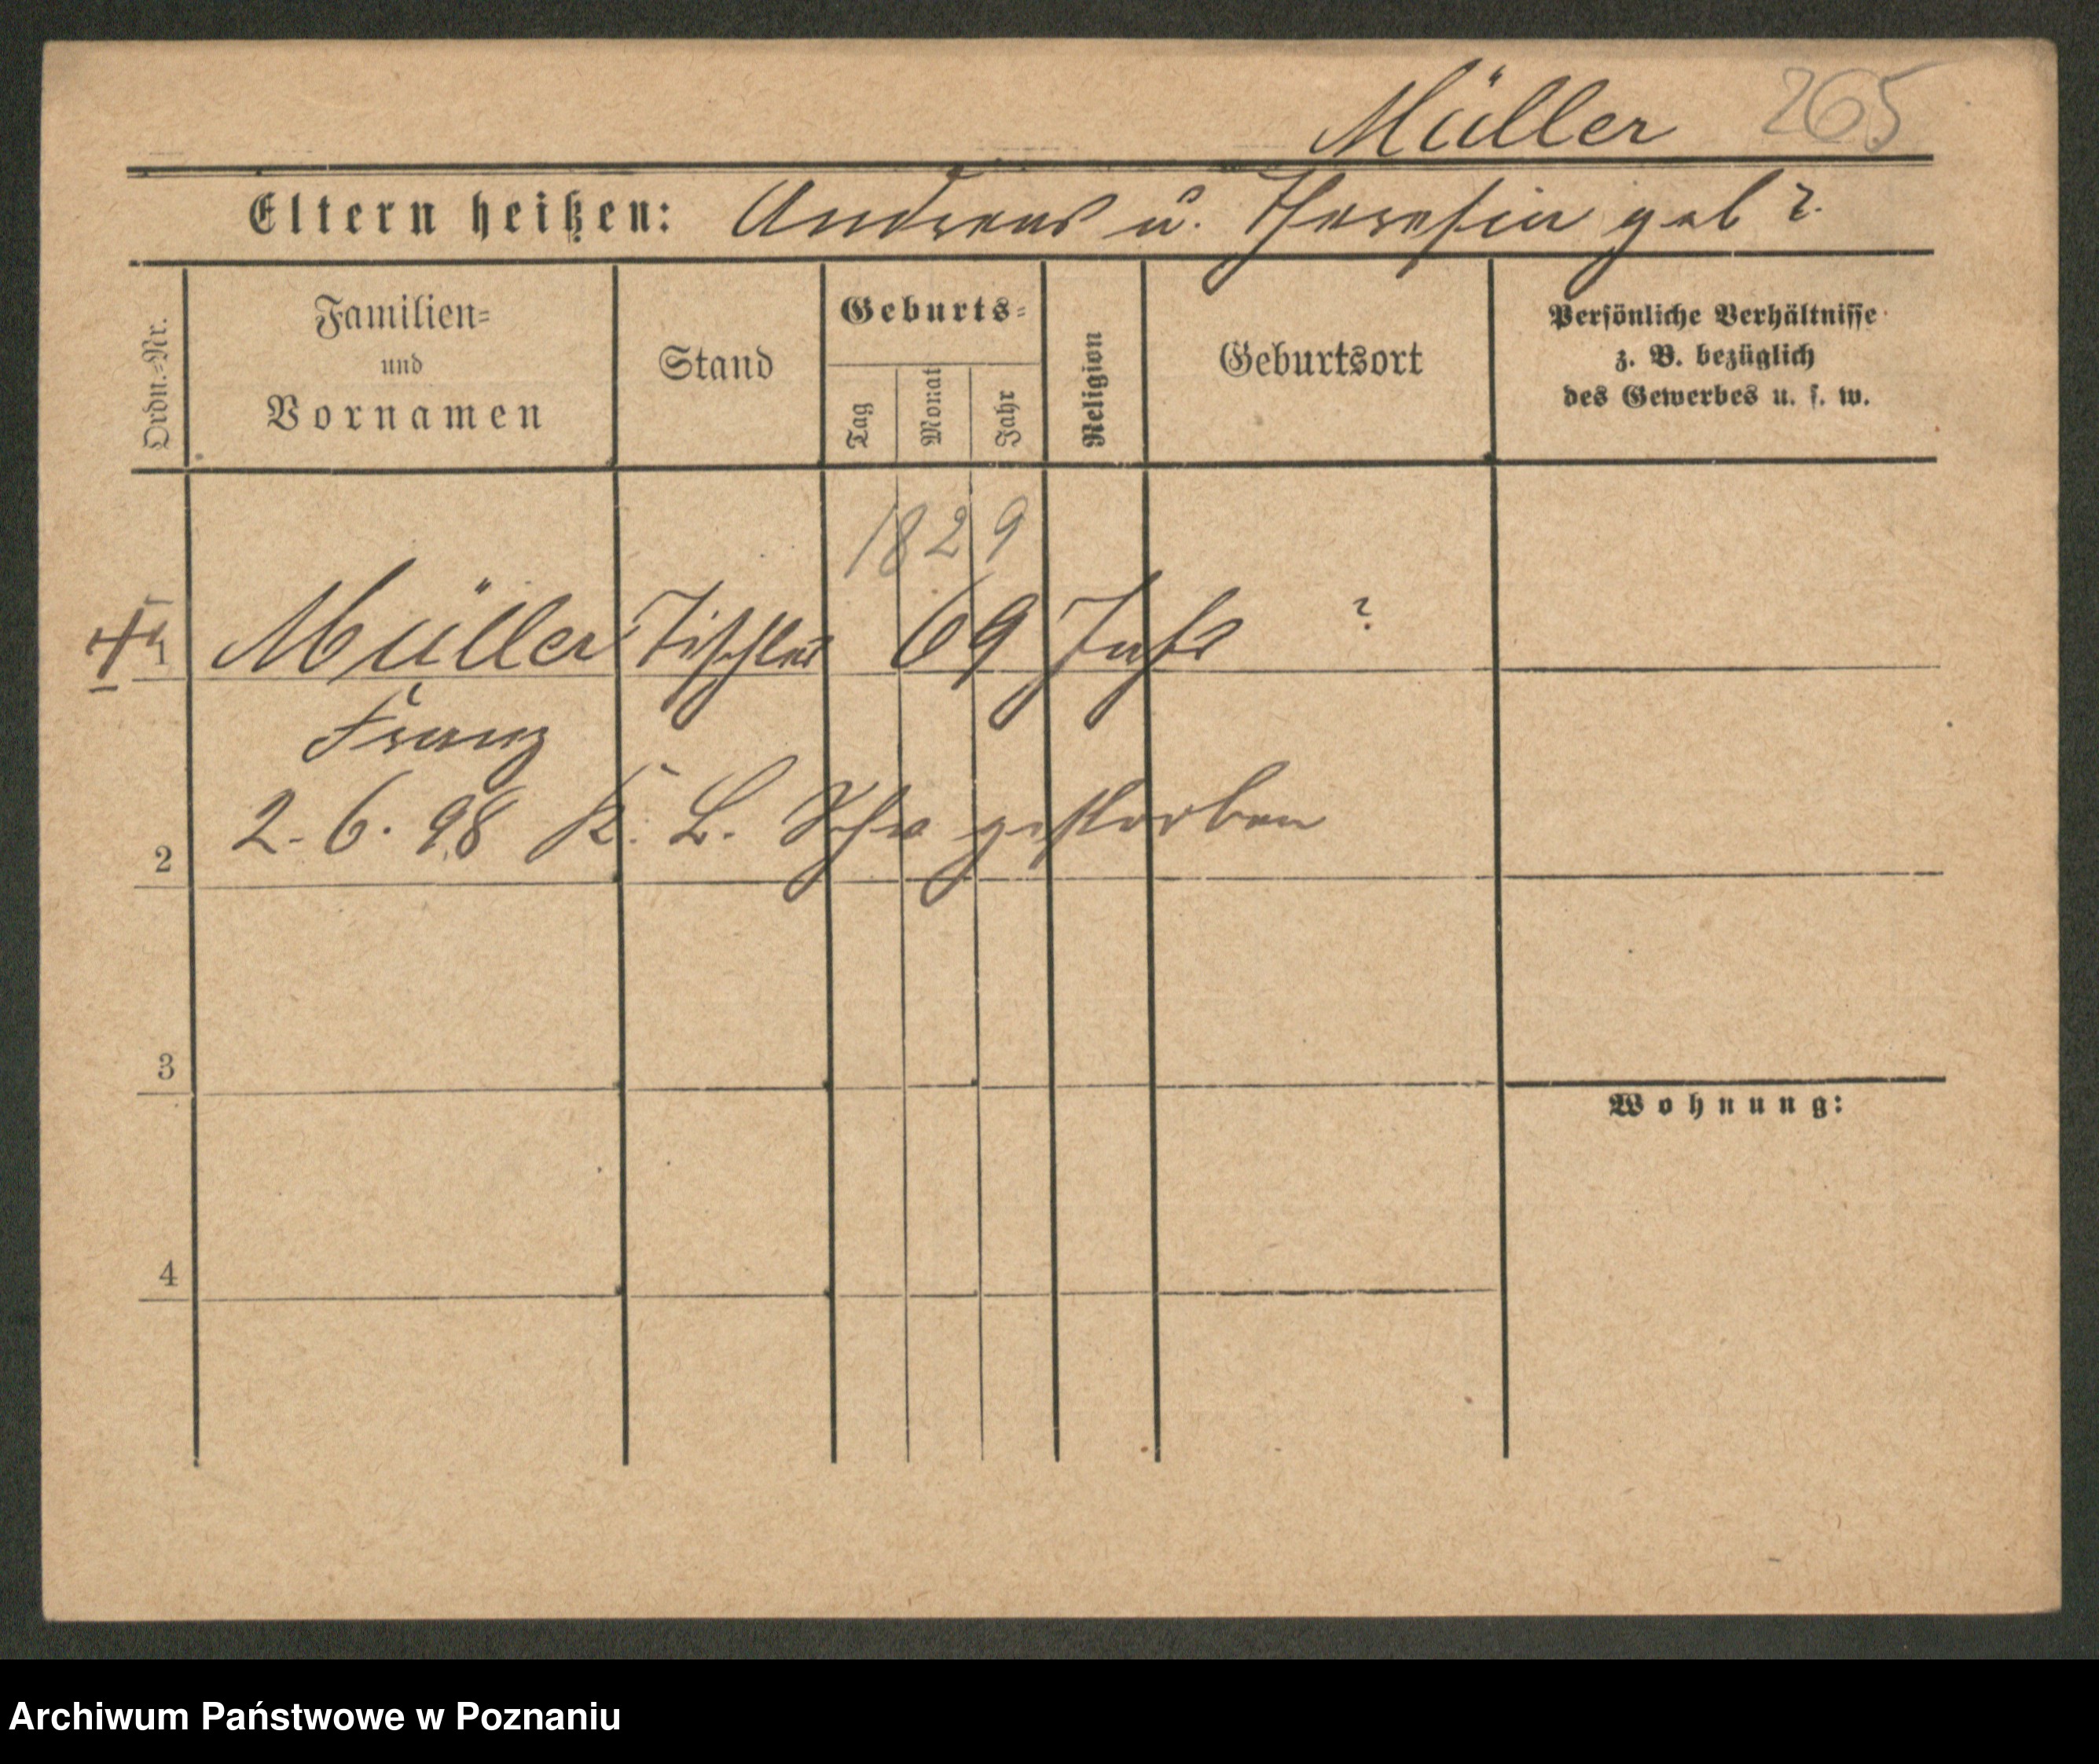 Müller 265
Eltern heißen: Andreas u. Theresia geb ?
Ordn.=Nr.
Familien=
und
Vornamen
Stand
Geburts=
Tag
Monat
Jahr
Religion
Geburtsort
Persönliche Verhältnisse
z. B. bezüglich
des Gewerbes u. s. w.
1829
1 Müller Tischler 69 Jahr ?
Franz
2 2. 6. 98 K. L. gestorben
3
Wohnung:
4
Archiwum Państwowe w Poznaniu